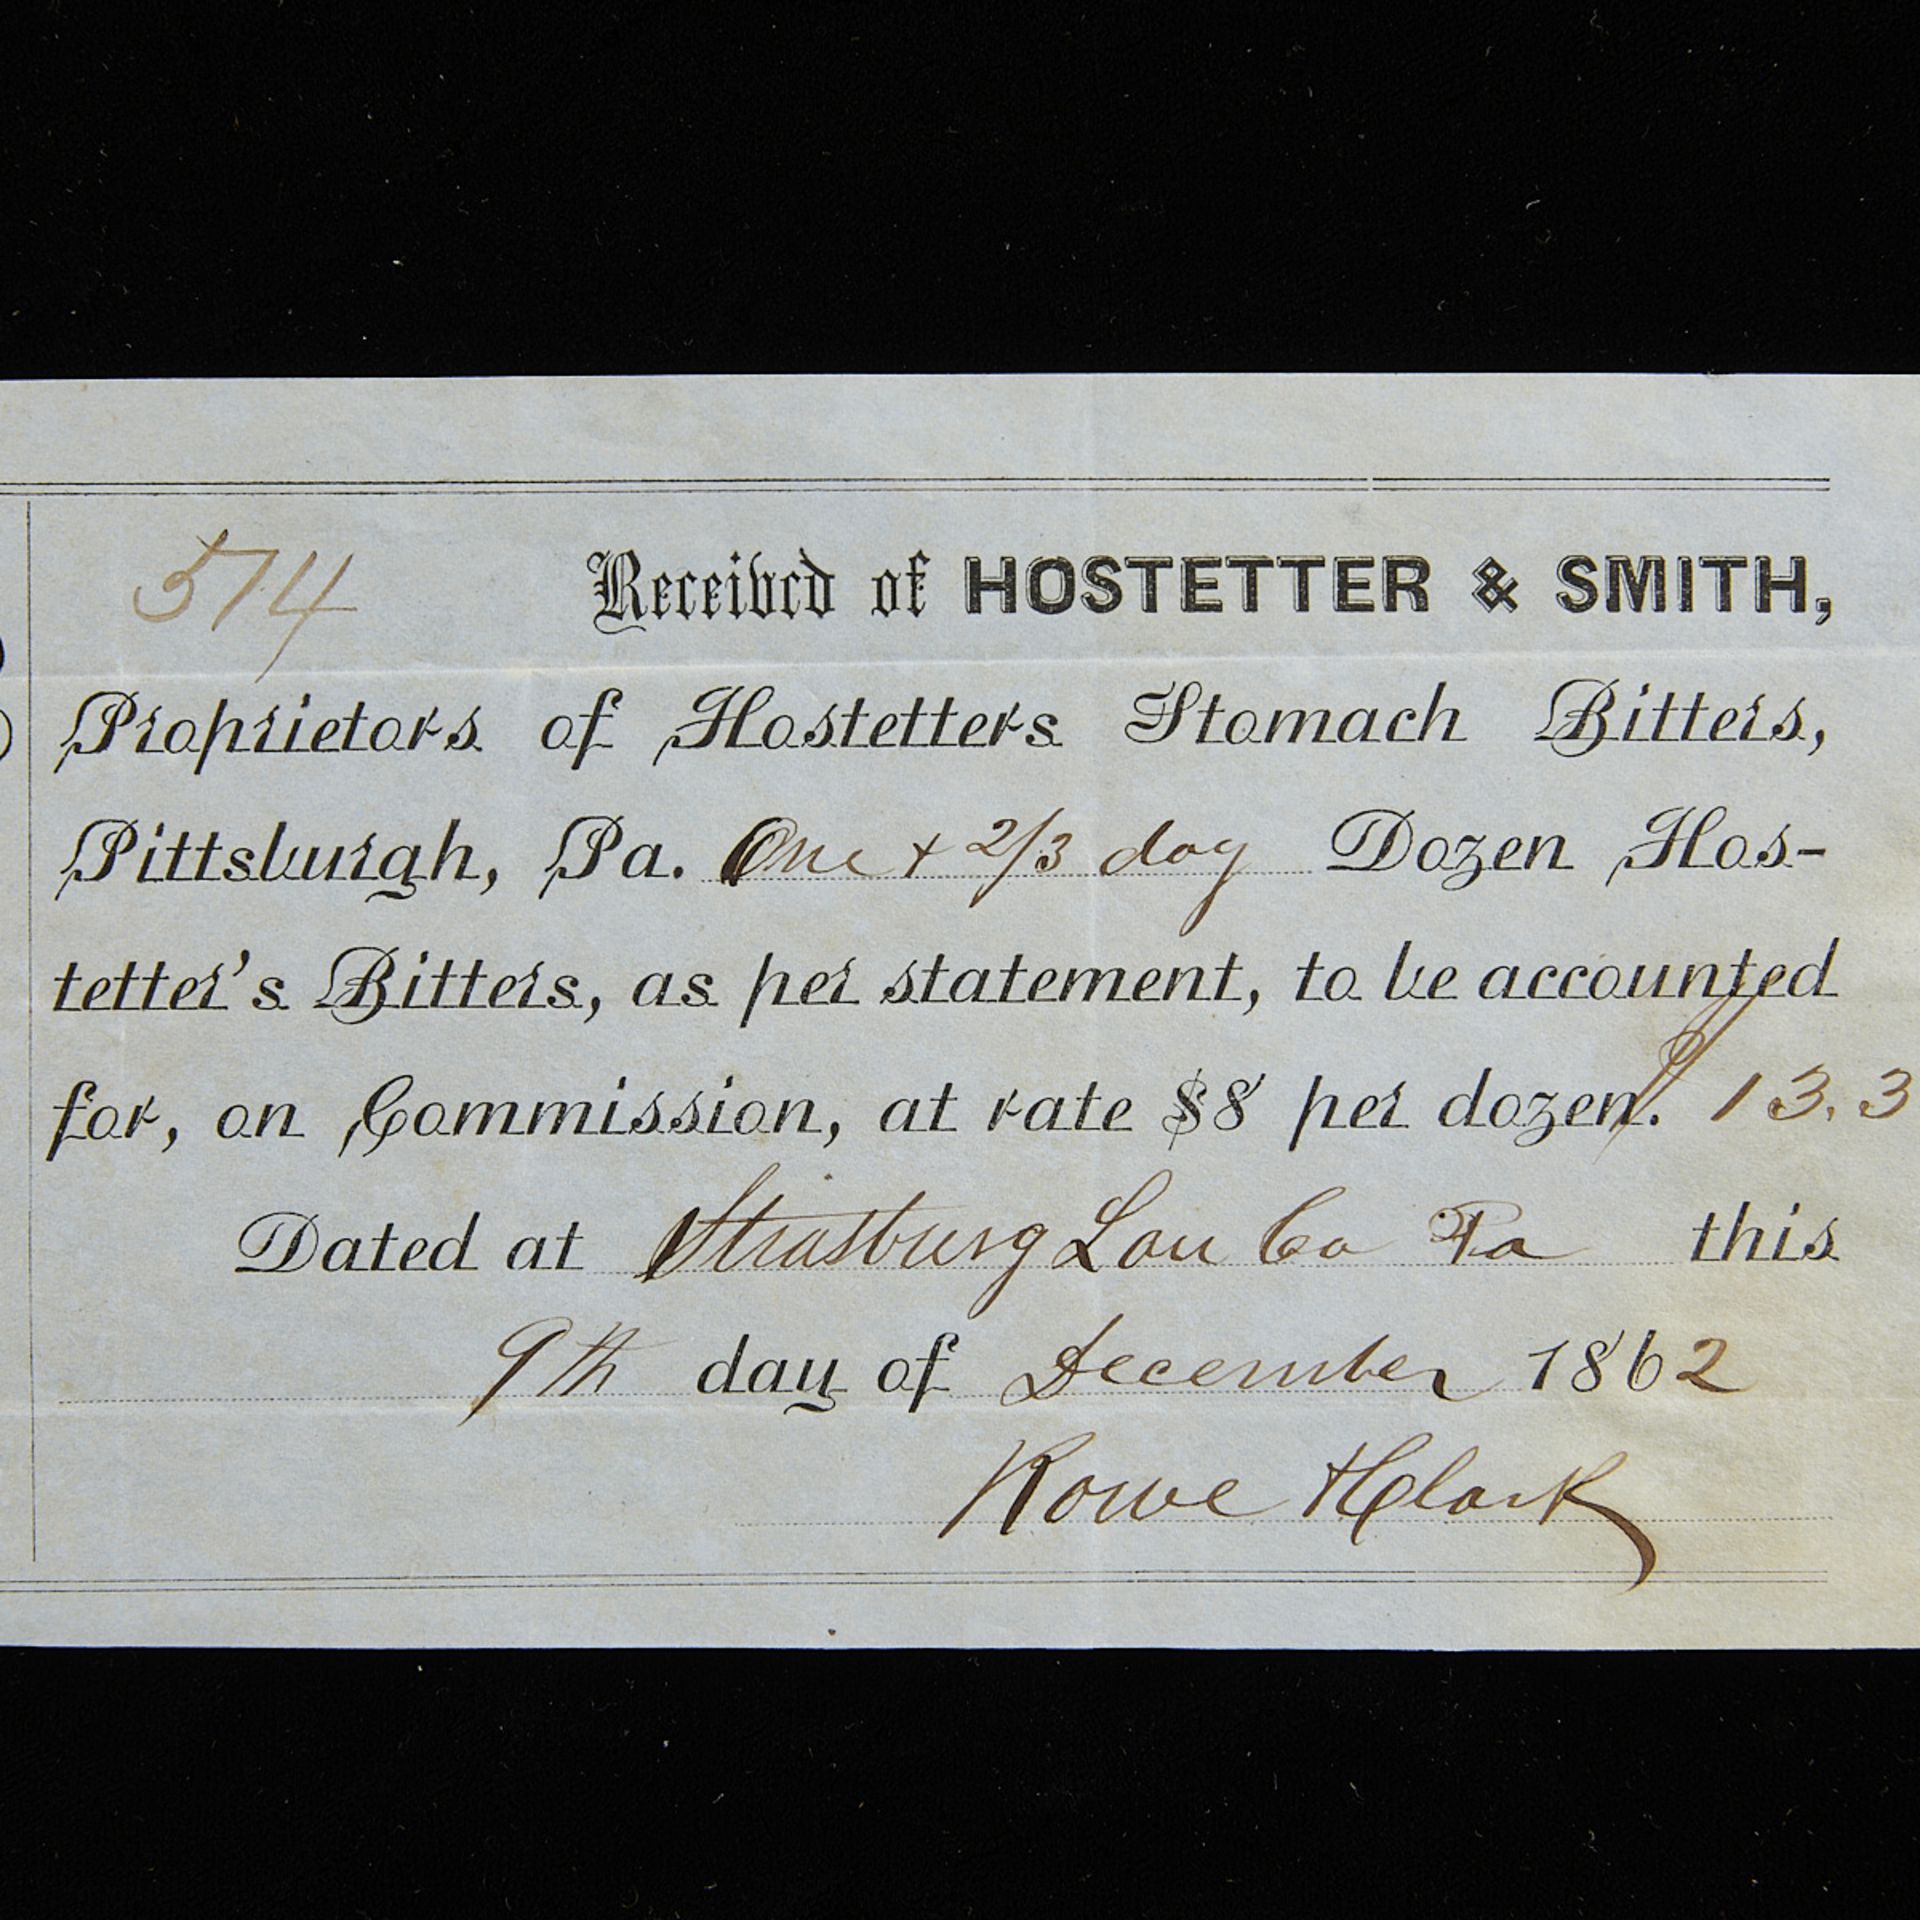 574 Received of HOSTETTER & SMITH,
Proprietors of Hostetters Stomach Bitters,
Pittsburgh, Pa. One + 2/3 doz Dozen Hos-
tetter's Bitters, as per statement, to be accounted
for, on Commission, at rate $8 per dozen. 13.3
Dated at Strasburg Lan Co Pa this
9th day of December 1862
Rowe & Clark